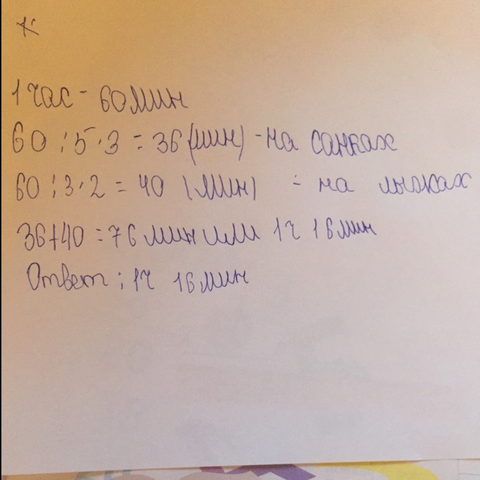 К
1 час - 60 мин
60 : 5 · 3 = 36 (мин) - на санках
60 : 3 · 2 = 40 (мин) - на лыжах
36 + 40 = 76 мин или 1ч 16 мин
Ответ : 1ч 16 мин